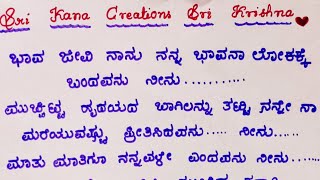 Sri Kana Creations Sri Krishna
ಭಾವ ಜೀವಿ ನಾನು ನನ್ನ ಭಾವನಾ ಲೋಕಕ್ಕೆ
ಬಂದವನು ನೀನು..........
ಮುಚ್ಚಿಟ್ಟ ಹೃದಯದ ಬಾಗಿಲನ್ನು ತಟ್ಟಿ ನನ್ನೇ ನಾ
ಮರೆಯುವಷ್ಟು ಪ್ರೀತಿಸಿದವನು..... ನೀನು.....
ಮಾತು ಮಾತಿಗೂ ನನ್ನವಳೇ ಎಂದವನು ನೀನು.....